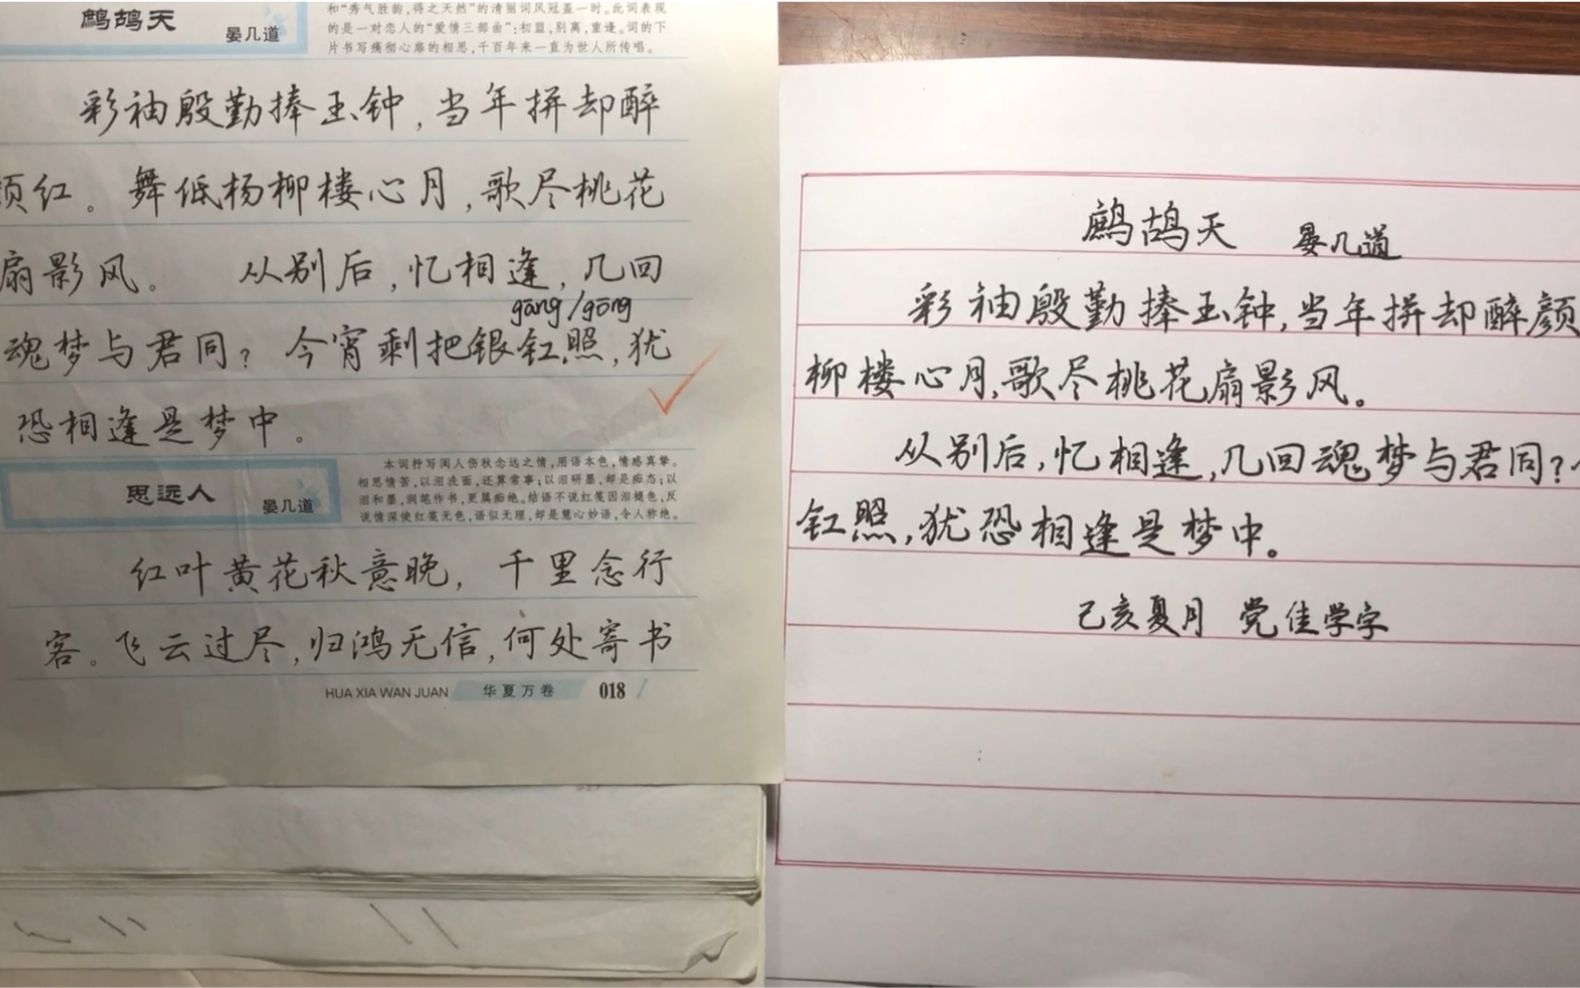 鹧鸪天 晏几道
和“秀气胜韵，得之天然”的清丽词风冠盖一时。此词表现
的是一对恋人的“爱情三部曲”：初盟，别离，重逢。词的下
片书写痛彻心扉的相思，千百年来一直为世人所传唱。
彩袖殷勤捧玉钟，当年拼却醉
颜红。舞低杨柳楼心月，歌尽桃花
扇影风。 从别后，忆相逢，几回
gāng/gōng
魂梦与君同？今宵剩把银釭照，犹
恐相逢是梦中。
思远人 晏几道
本词抒写闺人伤秋念远之情，用语本色，情感真挚。
相思情苦，以泪洗面，还算常事；以泪研墨，却是痴态；以
泪和墨，润笔作书，更属痴绝。结语不说红笺因泪褪色，反
说情深使红笺无色，语似无理，却是慧心妙语，令人称绝。
红叶黄花秋意晚，千里念行
客。飞云过尽，归鸿无信，何处寄书
HUA XIA WAN JUAN 华夏万卷 018
鹧鸪天 晏几道
彩袖殷勤捧玉钟，当年拼却醉颜
柳楼心月，歌尽桃花扇影风。
从别后，忆相逢，几回魂梦与君同？
釭照，犹恐相逢是梦中。
己亥夏月 党佳学字